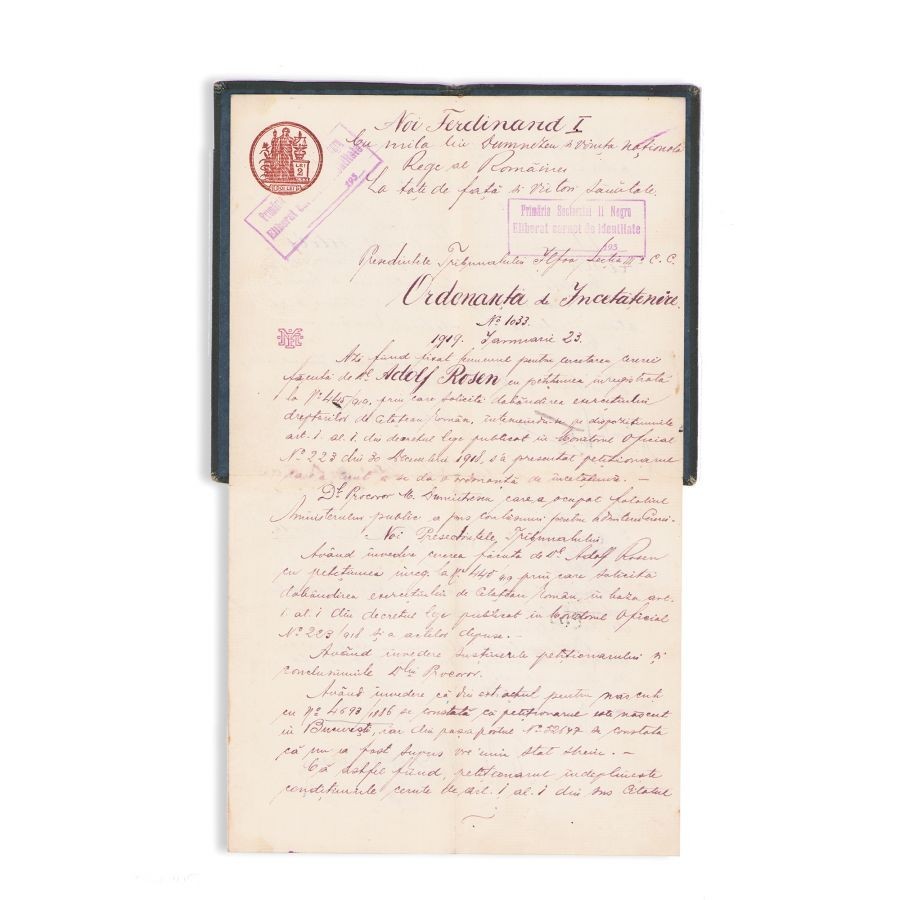 Noi Ferdinand I
Cu mila lui Dumnezeu și voința națională
Rege al României
La toți de față și viitori sănătate.
LEI 2
Primăria
Eliberat identitate
195
Primăria Sectorului II Negru
Eliberat carnet de identitate
195
Președintele Tribunalului Ilfov Secția III C. C.
Ordonanța de Incetățenire
No 1033
1919. Ianuarie 23.
Azi fiind fixat termenul pentru cercetarea cererii
făcută de Dl Adolf Rosen cu petițiunea înregistrată
la No 445/919, prin care solicită dobândirea exercițiului
drepturilor de Cetățean Român, întemeindu-se pe dispozițiunile
art. 1. al. 1. din decretul lege publicat in Monitorul Oficial
No 223 din 30 Decembrie 1918, s'a presentat petiționarul
a se da ordonanta de incetațenire. —
Dl. Procuror M. Dumitrescu care a ocupat fotoliul
Ministerului public a pus concluziuni pentru admiterea cererii.
Noi Președintele, Tribunalului
Având invedere cererea făcută de Dl Adolf Rosen
cu petițiunea inreg. la No 445/919 prin care solicită
dobândirea exercițiului de Cetățean Român, in baza art.
1 al. 1 din decretul lege publicat in Monitorul Oficial
No 223/918 și a actelor depuse. —
Având invedere susținerile petiționarului și
concluziunile Dlui Procuror.
Având invedere că din extractul pentru născuți
cu No 4693/1886 se constată, că petiționarul este născut
in București, iar din pașaportul No 52647 se constată
că nu a fost supus vre unui stat strein. —
Că astfel fiind, petiționarul indeplinește
condițiunile cerute de art. 1 al. 1 din sus citatul